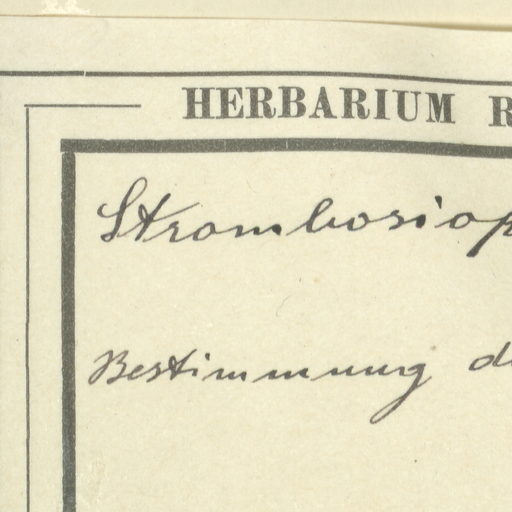 HERBARIUM R
Strombosiop
Bestimmung d